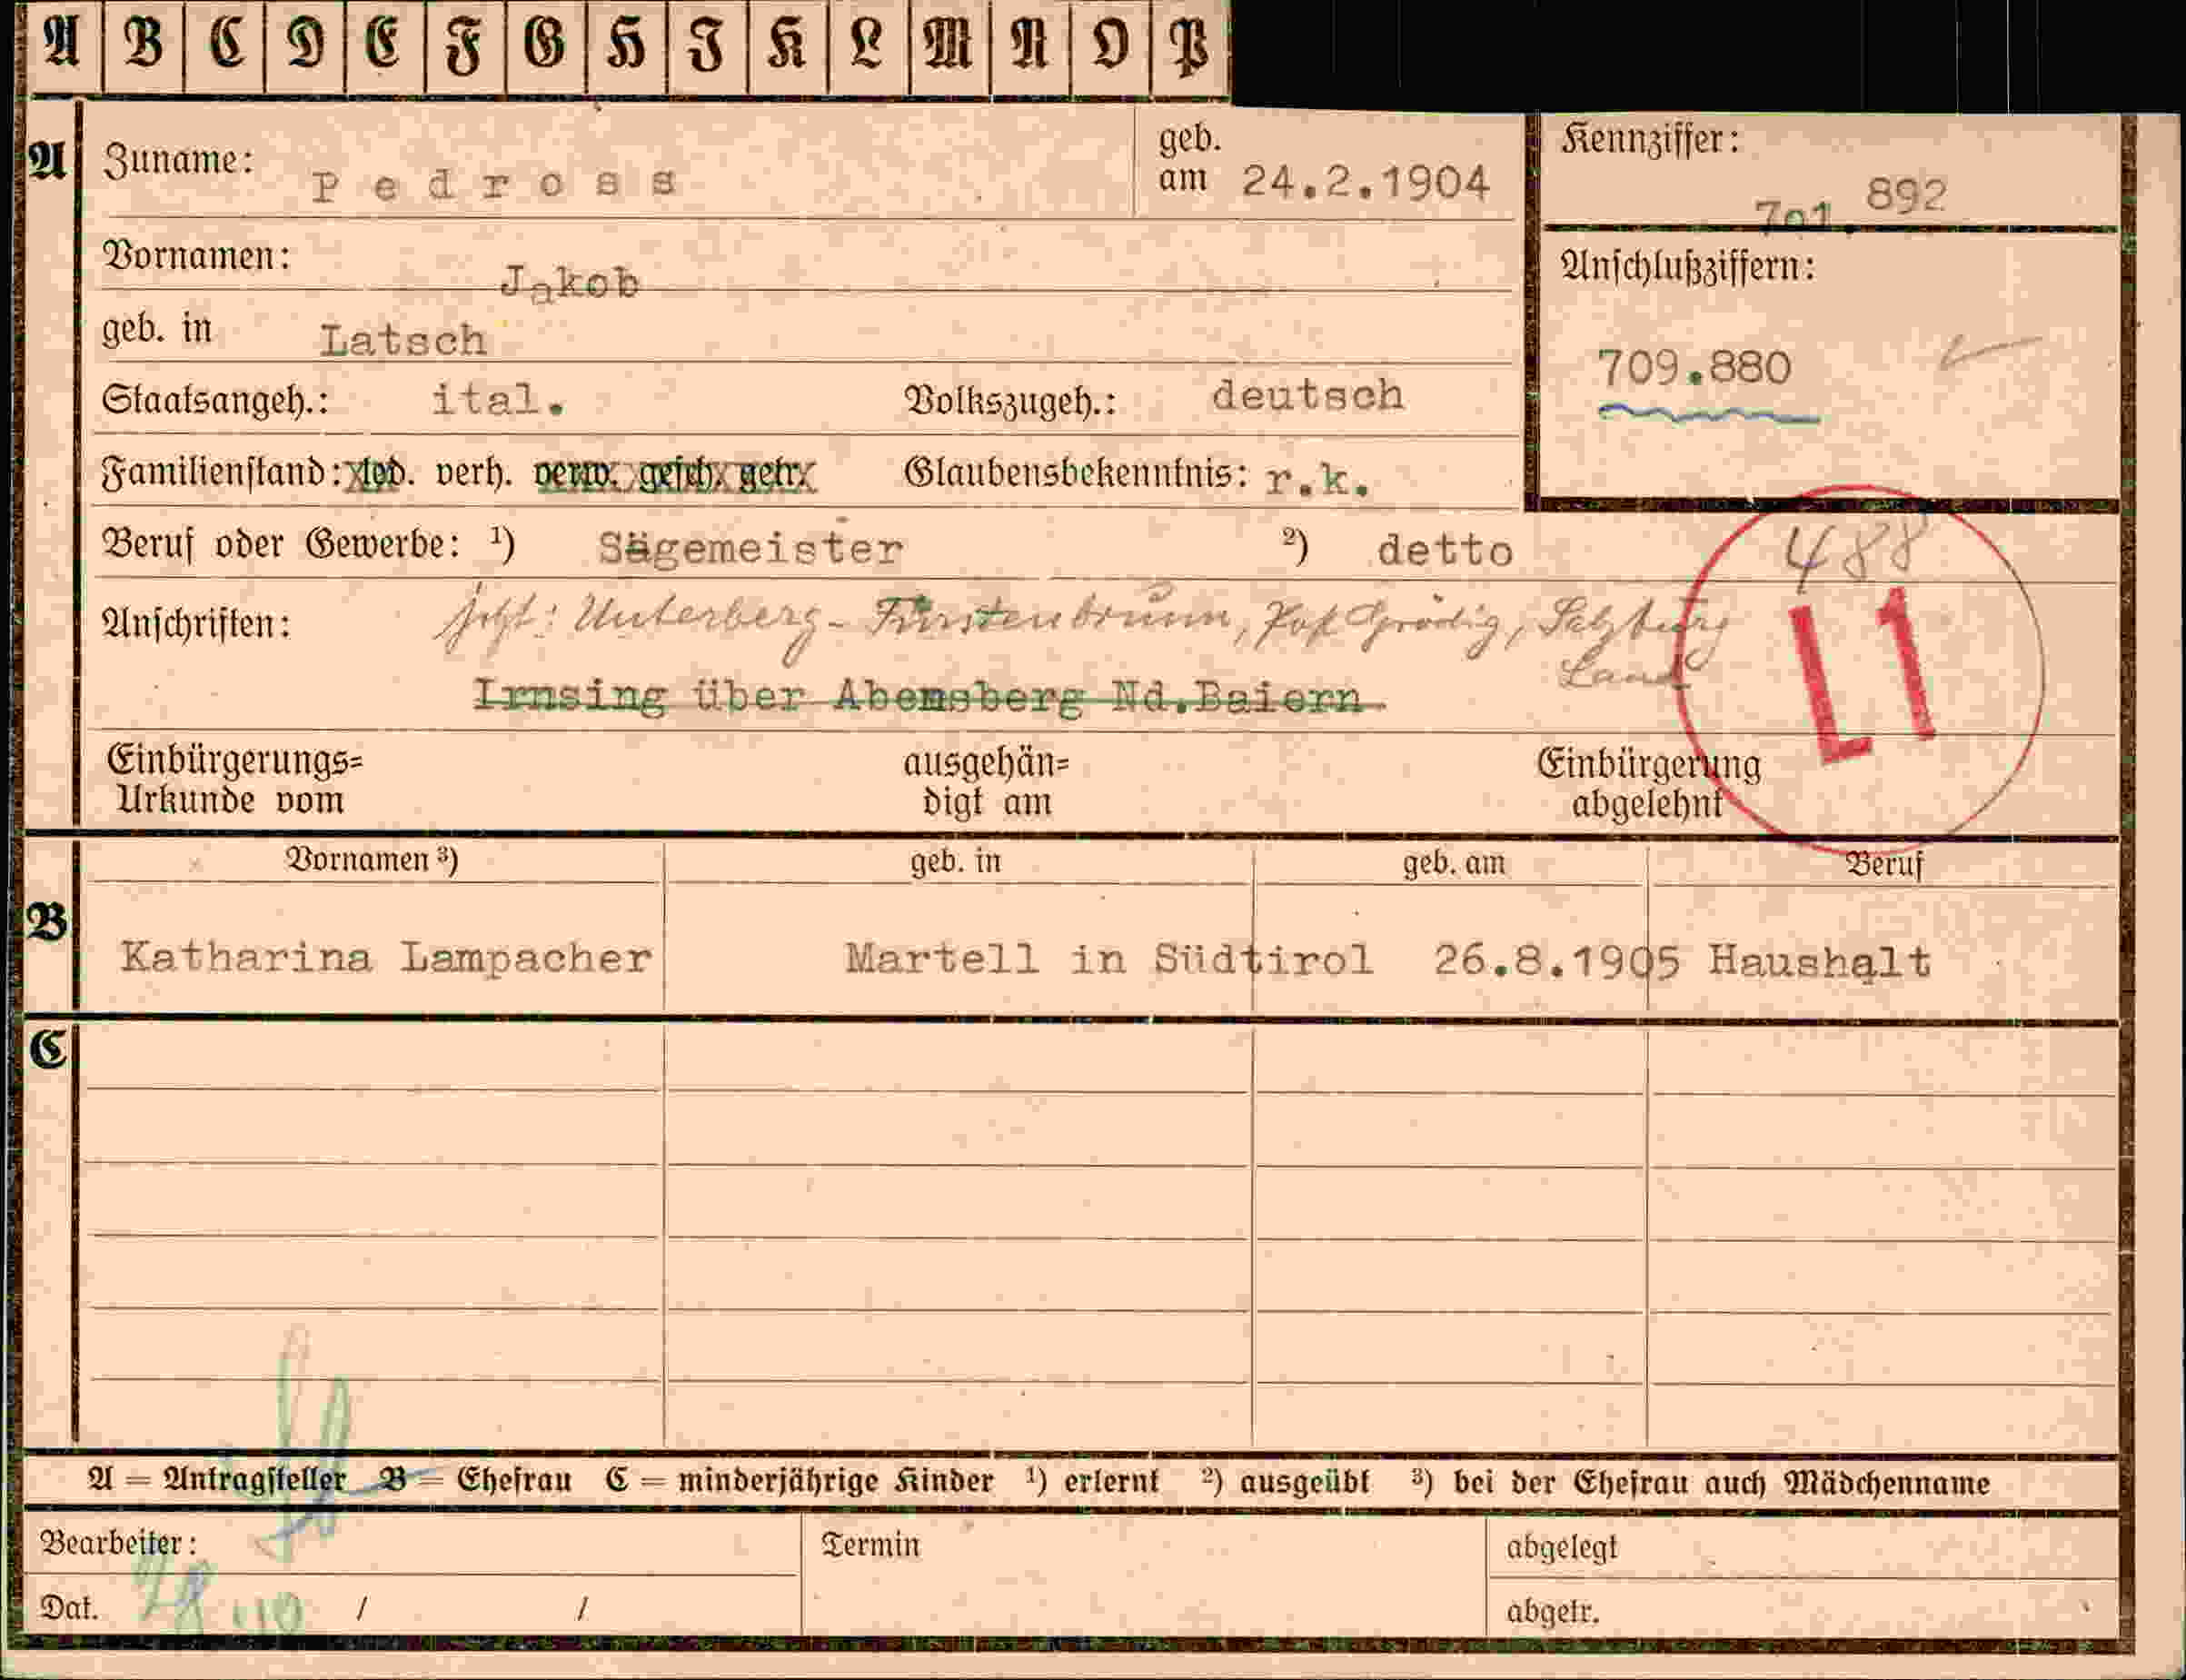 A B C D E F G H I K L M N O P
A
Zuname: Pedross
geb. am 24.2.1904
Kennziffer: 701.892
Vornamen: Jakob
Anschlußziffern:
geb. in Latsch
709.880
Staatsangeh.: ital. Volkszugeh.: deutsch
Familienstand: led. verh. verw. gesch. getr. Glaubensbekenntnis: r.k.
Beruf oder Gewerbe: ¹) Sägemeister ²) detto
488
L1
Anschriften: jetzt: Unterberg-Fürstenbrunn, Post Grödig, Salzburg
Land
Irnsing über Abensberg Nd.Baiern
Einbürgerungs=
Urkunde vom
ausgehän=
digt am
Einbürgerung
abgelehnt
B
Vornamen ³) geb. in geb. am Beruf
Katharina Lampacher Martell in Südtirol 26.8.1905 Haushalt
C
A = Antragsteller B = Ehefrau C = minderjährige Kinder ¹) erlernt ²) ausgeübt ³) bei der Ehefrau auch Mädchenname
Bearbeiter: Termin abgelegt
Dat. / / abgetr.